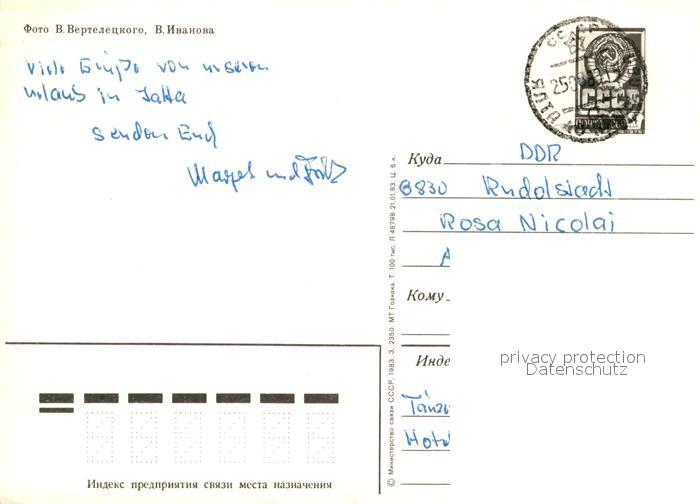 Фото В. Вертелецкого, В. Иванова
Viele Grüße von unseren
Urlaub in Jalta
senden Euch
und Fritz
СССР
Куда
DDR
6830 Rudolstadt
Rosa Nicolai
A
Кому
Инде
privacy protection
Datenschutz
© Министерство связи СССР, 1983. З. 2350. МТ Гознака. Т. 100 тыс. Л 48798. 21.01.83. Ц. 6 к.
Индекс предприятия связи места назначения